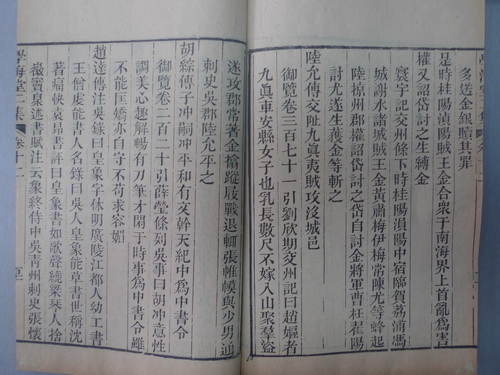 多送金銀贖其罪
是時桂陽滇陽賊王金合衆于南海界上首亂爲害
權又詔岱討之生縛金
寰宇記交州條下時桂陽滇陽中宿臨賀荔浦馮
城謝水諸城賊王金黃肅梅伊梅常陳尤等蜂起
桂陽郡權詔岱討之岱自討金將軍曹杜翟陽
討尤遂生獲金等斬之
陸允傳交阯九眞夷賊攻沒城邑
御覽卷三百七十一引劉欣期交州記曰趙嫗者
九眞軍安縣女子也乳長數尺不嫁入山聚羣盜
遂攻郡常著金擒蹤屐戰退輒張帷幔與少男通
刺史吳郡陸允平之
胡綜傳子沖嗣沖平和有文幹天紀中爲中書令
御覽卷二百二十引薛瑩條列吳事曰胡沖意性
調美心趣解暢有刀筆才閑于時事爲中書令雖
不能匡矯亦自守不苟求容媚
趙達傳注吳錄曰皇象字休明廣陵江都人幼工書
王僧虔能書人名錄曰吳人皇象能草書世稱沈
著痛快袁昂書評曰皇象書如歌聲繞梁琴人捨
徽竇臮述書賦注云象終侍中吳青州刺史張懷
學海堂二集
卷十二